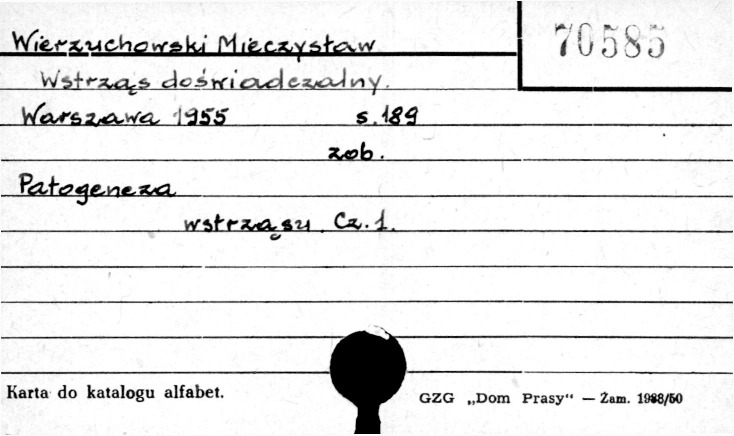 70585
Wierzuchowski Mieczysław
Wstrząs doświadczalny.
Warszawa 1955 s.189
zob.
Patogeneza
wstrząsu. Cz.1.
Karta do katalogu alfabet.
GZG „Dom Prasy“ — Żam. 1988/50